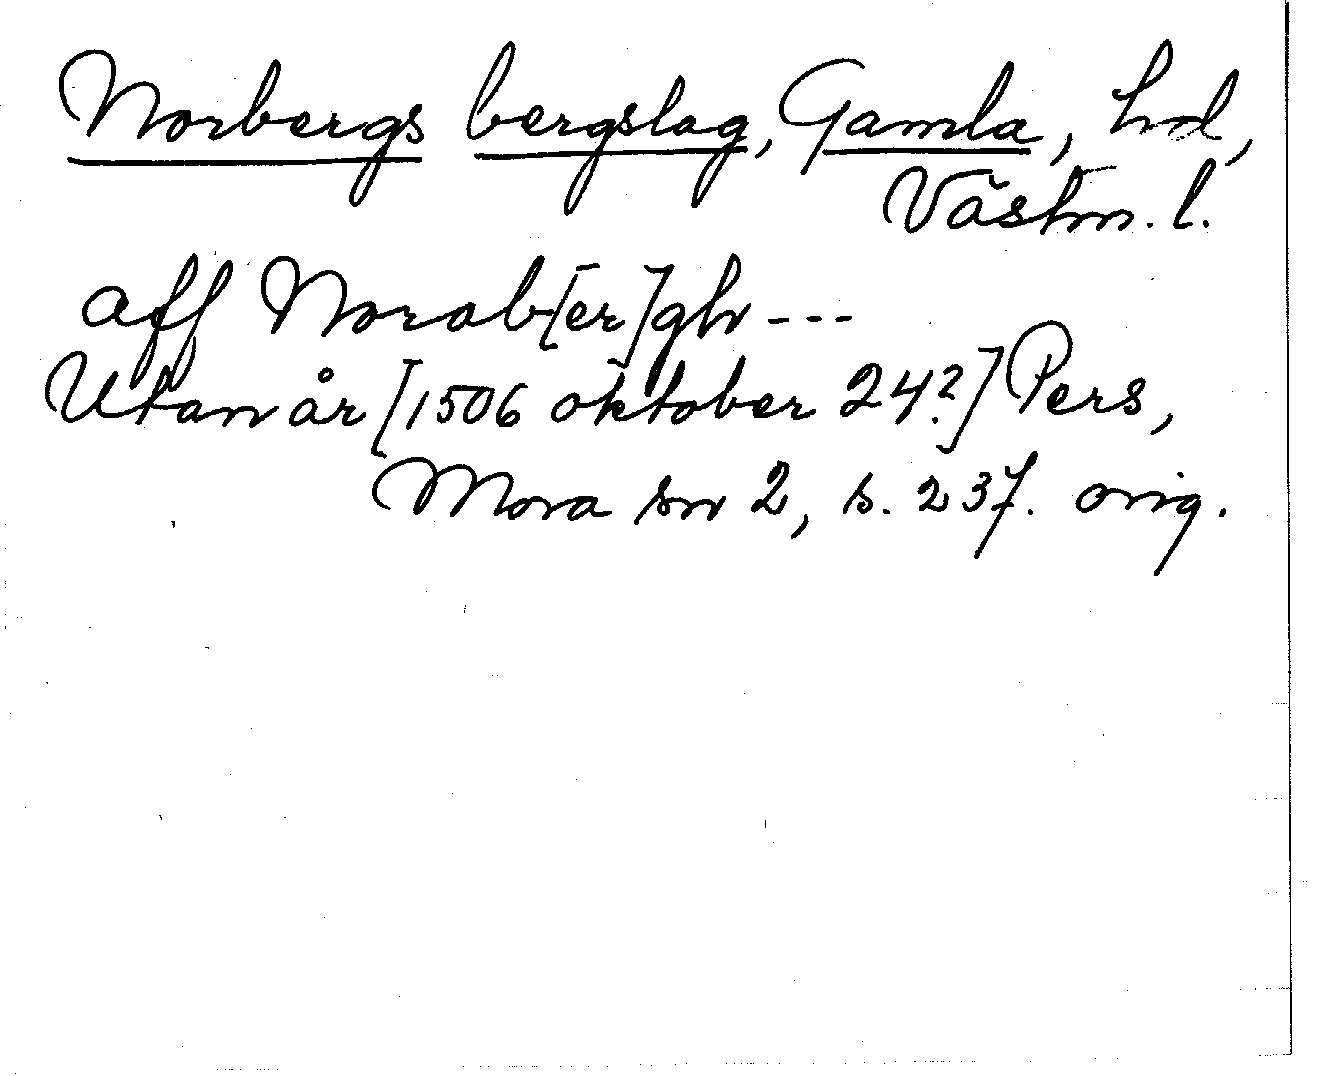 Norbergs bergslag, Gamla, hd,
Västm. l.
aff Norab[er]gh ---
Utan år [1506 oktober 24?] Pers,
Mora sn 2, s. 237. orig.